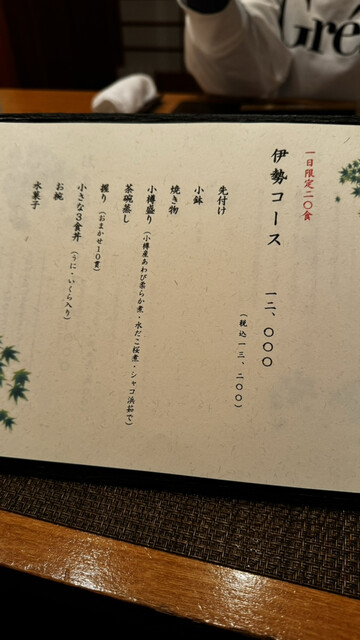 Gré
一日限定二〇食
伊勢コース 一二、〇〇〇
(税込一三、二〇〇)
先付け
小鉢
焼き物
小樽盛り(小樽産あわび柔らか煮・水だこ桜煮・シャコ浜茹で)
茶碗蒸し
握り(おまかせ10貫)
小さな3食丼(うに・いくら入り)
お椀
水菓子